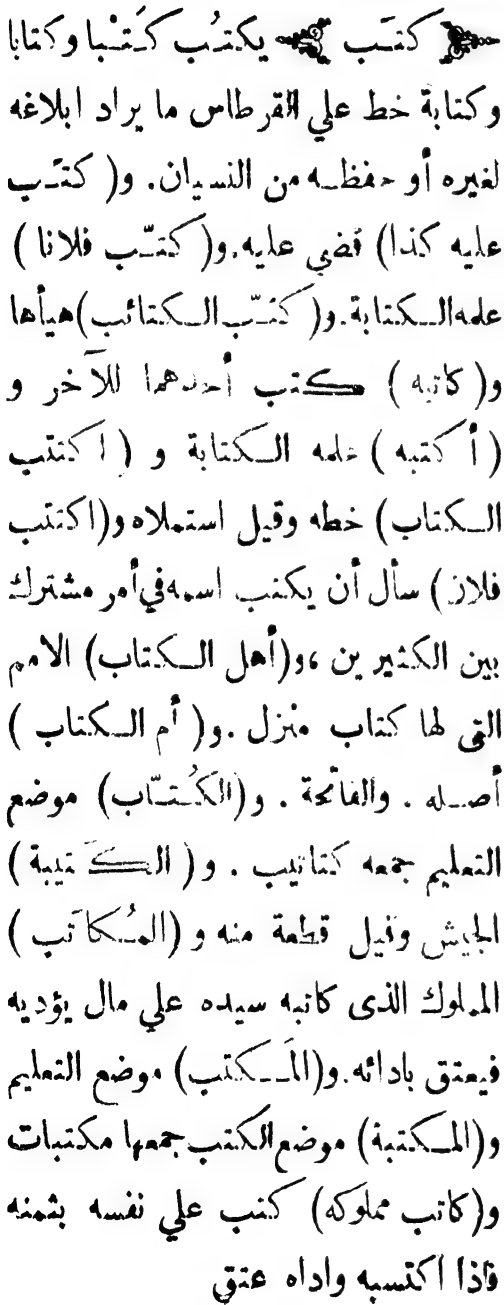 كتَب يكتُب كَتْبا وكتابا
وكتابة خط علي القرطاس ما يراد ابلاغه
لغيره أو حفظه من النسيان. و( كتَب
عليه كذا) قضي عليه.و( كتّب فلانا )
علمه الكتابة.و( كتّب الكتائب)هيأها
و( كاتبه ) كتب أحدهما للآخر و
( أكتبه ) علمه الكتابة و ( اكتتب
الكتاب) خطه وقيل استملاه و(اكتتب
فلان) سأل أن يكتب اسمه في أمر مشترك
بين الكثيرين ،و(أهل الكتاب) الامم
التي لها كتاب منزل .و( أم الكتاب )
أصله . والفاتحة . و(الكُتّاب) موضع
التعليم جمعه كتاتيب . و( الكَتيبة )
الجيش وقيل قطعة منه و (المُكاتَب )
المملوك الذى كاتبه سيده علي مال يؤديه
فيعتق بادائه.و(المَكتب) موضع التعليم
و(المكتبة) موضع الكتب جمعها مكتبات
و(كاتب مملوكه) كتب علي نفسه بثمنه
فاذا اكتسبه واداه عتق